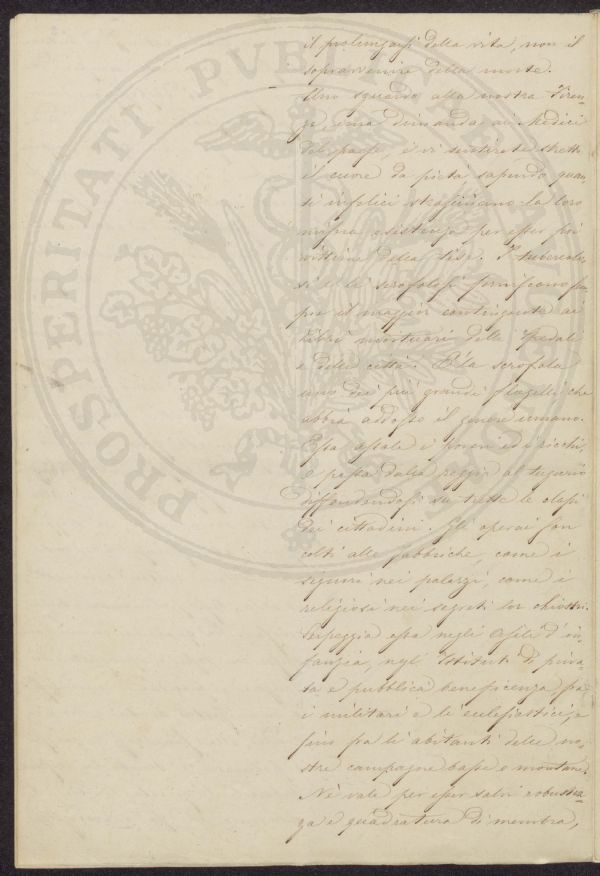 il prolungarsi della vita, non il
sopravvenire della morte.
Uno sguardo alla nostra Firen-
ze, una dimanda ai Medici
del paese, e vi sentirete stretto
il cuore da pietà sapendo quan-
ti infelici strascinano la loro
misera esistenza per esser poi
vittime della tise. I tubercolo-
si e li scrofolosi forniscono
pre il maggior contingente ai
libri mortuari delle Spedali
e delle città. È la scrofola
uno dei più grandi flagelli che
abbia addosso il genere umano.
Essa assale i poveri ed i ricchi,
e passa dalla reggia al tugurio
diffondendosi su tutte le classi
dei cittadini. Gli operai son
colti alle fabbriche, come i
signori nei palazzi, come i
religiosi nei segreti lor chiostri.
Serpeggia essa negli Asili d'in-
fanzia, negl' Istituti di priva-
ta e pubblica beneficenza, fra
i militari e li ecclesiastici, e
fino fra li abitanti delle no-
stre campagne basse o montane.
Nè vale per esser salvi robustez-
za e quadratura di membra,
PROSPERITATI PVBLICAE